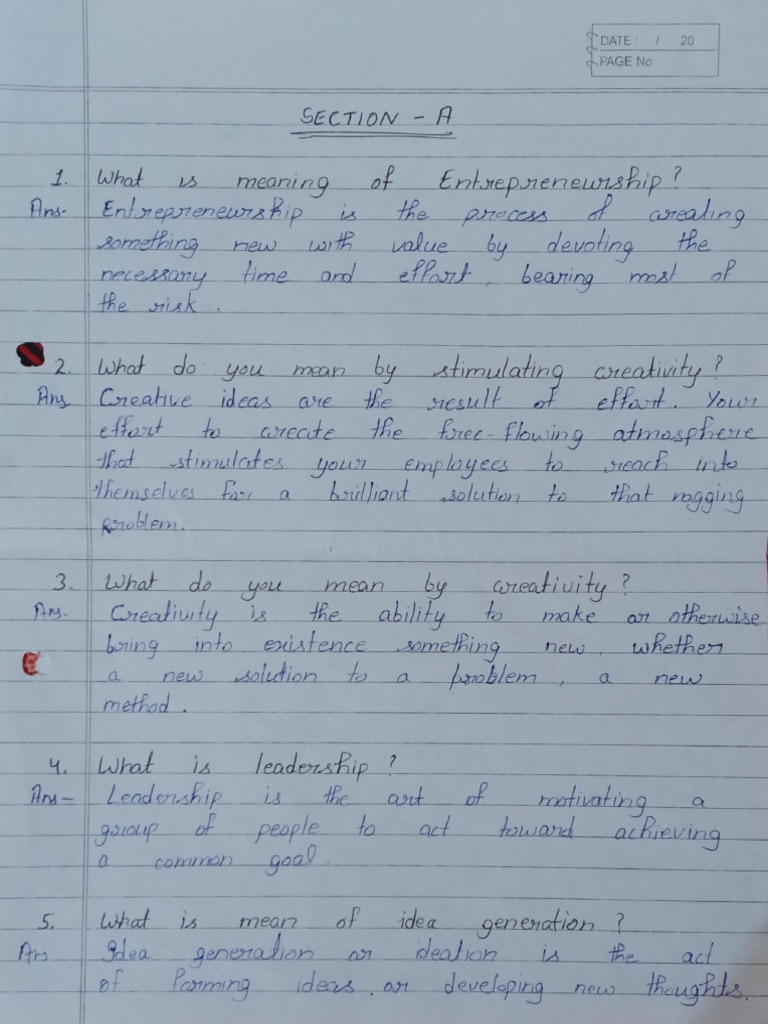 DATE : / 20
PAGE No
SECTION - A
1. What is meaning of Entrepreneurship?
Ans- Entrepreneurship is the process of creating
something new with value by devoting the
necessary time and effort, bearing most of
the risk.
2. What do you mean by stimulating creativity?
Ans Creative ideas are the result of effort. Your
effort to create the free-flowing atmosphere
that stimulates your employees to reach into
themselves for a brilliant solution to that ragging
problem.
3. What do you mean by creativity?
Ans. Creativity is the ability to make or otherwise
bring into existence something new, whether
a new solution to a problem, a new
method.
4. What is leadership?
Ans- Leadership is the art of motivating a
group of people to act toward achieving
a common goal.
5. What is mean of idea generation?
Ans Idea generation or ideation is the act
of forming ideas. or developing new thoughts.